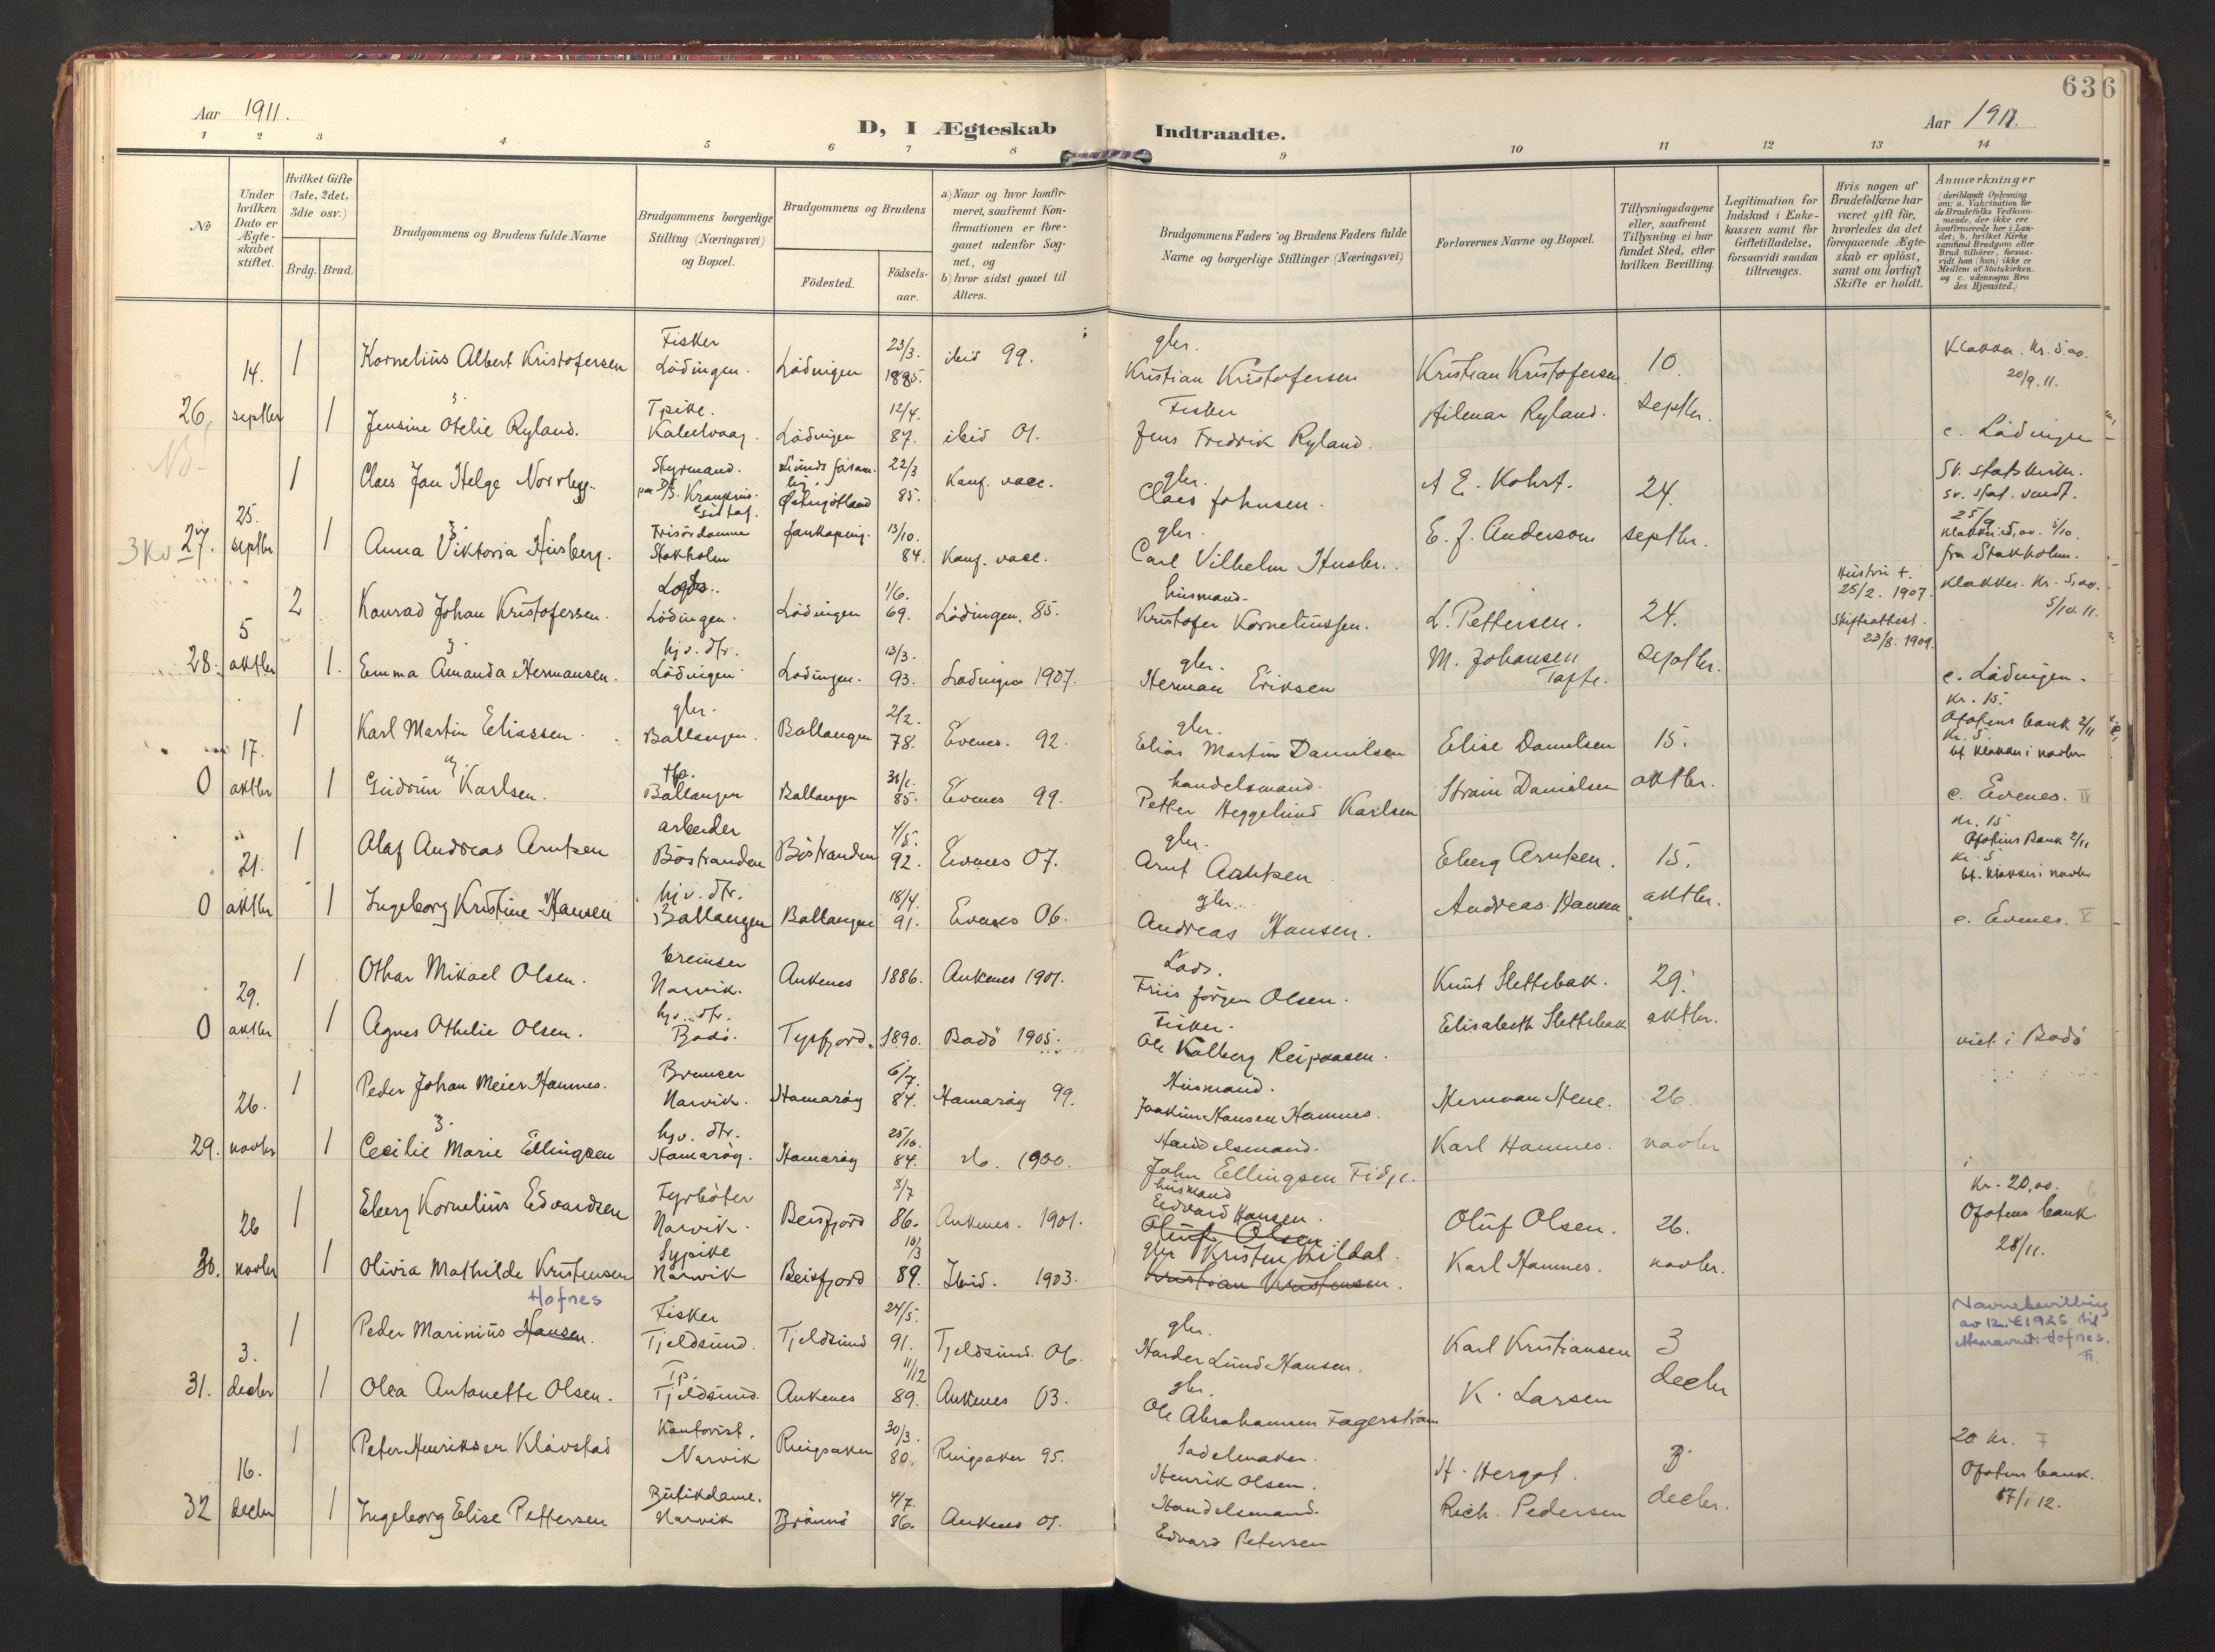 636
Aar 1911.
D, I Ægteskab Indtraadte.
Aar 1911.
1 2 3 4 5 6 7 8 9 10 11 12 13 14
No
Under hvilken Dato er Ægte- skabet stiftet.
Hvilket Gifte (1ste, 2det, 3die osv.)
Brdg. Brud.
Brudgommens og Brudens fulde Navne
Brudgommens borgerlige Stilling (Næringsvei) og Bopæl.
Brudgommens og Brudens
Födested.
Födsels- aar.
a) Naar og hvor konfir- meret, saafremt Kon- firmationen er fore- gaaet udenfor Sog- net, og b) hvor sidst gaaet til Alters.
Brudgommens Faders og Brudens Faders fulde Navne og borgerlige Stillinger (Næringsvei)
Forlovernes Navne og Bopæl.
Tillysningsdagene eller, saafremt Tillysning ei har fundet Sted, efter hvilken Bevilling.
Legitimation for Indskud i Enke- kassen samt for Giftetilladelse, forsaavidt saadan tiltrænges.
Hvis nogen af Brudefolkene har været gift för, hvorledes da det foregaaende Ægte- skab er oplöst, samt om lovligt Skifte er holdt.
Anmærkninger (deriblandt Oplysning om: a. Vaksination for de Brudefolks Vedkom- mende, der ikke ere konfirmerede her i Lan- det; b. hvilket Kirke samfund Brudgom eller Brud tilhörer, forsaa- vidt han (hun) ikke er Medlem af Statskirken. og c. udensogns Bru des Hjemsted.)
26. 14. septbr 1 Kornelius Albert Kristofersen Fisker Lödingen. Lödingen 23/3. 1885. ibid 99. gbr. Kristian Kristofersen Kristian Kristofersen 10. septbr. Klokker. Kr. 5.00. 20/9.11.
1 Jensine Otelie Ryland. Tpike. Lödingen 12/4. 87. ibid 01. Fisker Jens Fredrik Ryland. Hilmar Ryland. c. Lödingen
27. 25. septbr 1 Claes Jan Helge Norrbyg. Styrmand. Östergötland 22/3 85. Konf. vacc. gbr. Claes Johnsen. A E. Kohrt. 24. septbr. Sv. statskirke.
1 Anna Viktoria Husberg. Frisördamme Stokholm Jonkoping. 13/10. 84. Konf. vacc. gbr. Carl Vilhelm Husbr. E. J. Anderson fra Stokholm.
28. 5 oktbr 2 Konrad Johan Kristofersen. Lods. Lödingen. Lödingen 1/6. 69. Lödingen. 85. husmand. Kristofer Korneliussen. L. Pettersen. 24. septbr. Hustru +. 25/2. 1907. Skifteattest. 23/8. 1909. Klokker. Kr. 5,00. 5/10.11.
1. Emma Amanda Hermansen. hjv. dtr. Lödingen Lödingen. 13/3. 93. Lödingen 1907. gbr. Herman Eriksen M. Johansen Tofte. c. Lödingen.
0 17. oktbr 1 Karl Martin Eliassen. gbr. Ballangen. Ballangen 2/2. 78. Evenes. 92. gbr. Elias Martin Danielsen Elise Danielsen 15. oktbr. Kr. 15. Ofotens bank 2/11 Kr. 5.
1 Gudrun Karlsen. tp. Ballangen Ballangen 31/1. 85. Evenes 99. handelsmand. Petter Heggelund Karlsen Danielsen c. Evenes. IV
0 21. oktbr 1 Olaf Andreas Arntsen arbeider Böstranden Böstranden 4/5. 92. Evenes 07. gbr. Arnt Arntsen Eberg Arntsen. 15. oktbr. Kr. 15 Ofotens Bank 2/11 Kr. 5
1 Ingeborg Kristine Hansen hjv. dtr. Ballangen Ballangen 18/4. 91. Evenes 06. gbr. Andreas Hansen. Andreas Hansen c. Evenes. V
0 29. oktbr 1 Othar Mikael Olsen. bremser Narvik. Ankenes 1886. Ankenes 1901. Lods. Friis Jörgen Olsen. Knut Slettebak. 29. oktbr.
1 Agnes Othelie Olsen. hjv. dtr. Bodö. Tysfjord. 1890. Bodö 1905. Fisker. Ole Kolberg Reipaasen. Elisabeth Slettebak viet i Bodö
29. 26. novbr 1 Peder Johan Meier Hamnes. Bremser Narvik. Hamaröy 6/7. 84. Hamaröy 99. Husmand. Joakim Hansen Hamnes. Herman Hene. 26. novbr
1 Cecilie Marie Ellingsen hjv. dtr. Hamaröy. Hamaröy 25/10. 84. do. 1900. Handelsmand. John Ellingsen Karl Hamnes.
30. 26 novbr 1 Eberg Kornelius Edvardsen Fyrböter Narvik. Beisfjord 3/7 86. Ankenes. 1901. husmand Edvard Hansen. Oluf Olsen Oluf Olsen. 26. novbr. Kr. 20,00. Ofotens bank. 28/11.
1 Olivia Mathilde Kristensen Sypike Narvik Beisfjord 10/3 89. Ibid. 1903. gbr Kristen Kildal. Kristian Kristensen. Karl Hamnes.
31. 3. decbr 1 Peder Marinius Hansen. Hofnes Fisker Tjeldsund. Tjeldsund 24/5. 91. Tjeldsund. 06. gbr. Harder Lund Hansen. Karl Kristiansen 3 decbr Navnebevilling av 12. 1925 til Hofnes.
1 Olea Antonette Olsen. Tp. Tjeldsund. Ankenes 11/12 89. Ankenes 03. gbr. Ole Abrahamsen Fagerstrøm K. Larsen
32 16. decbr 1 Peter Henriksen Klövstad Kontorist. Narvik Ringsaker 30/3. 80. Ringsaker 95. Sadelmaker. Henrik Olsen. H. Hergot. 3 decbr. 20 kr. Ofotens bank. 17/1 12.
1 Ingeborg Elise Pettersen Butikdame. Narvik Brönnö 4/7. 86. Ankenes 01. Handelsmand. Edvard Petersen Rich. Pedersen